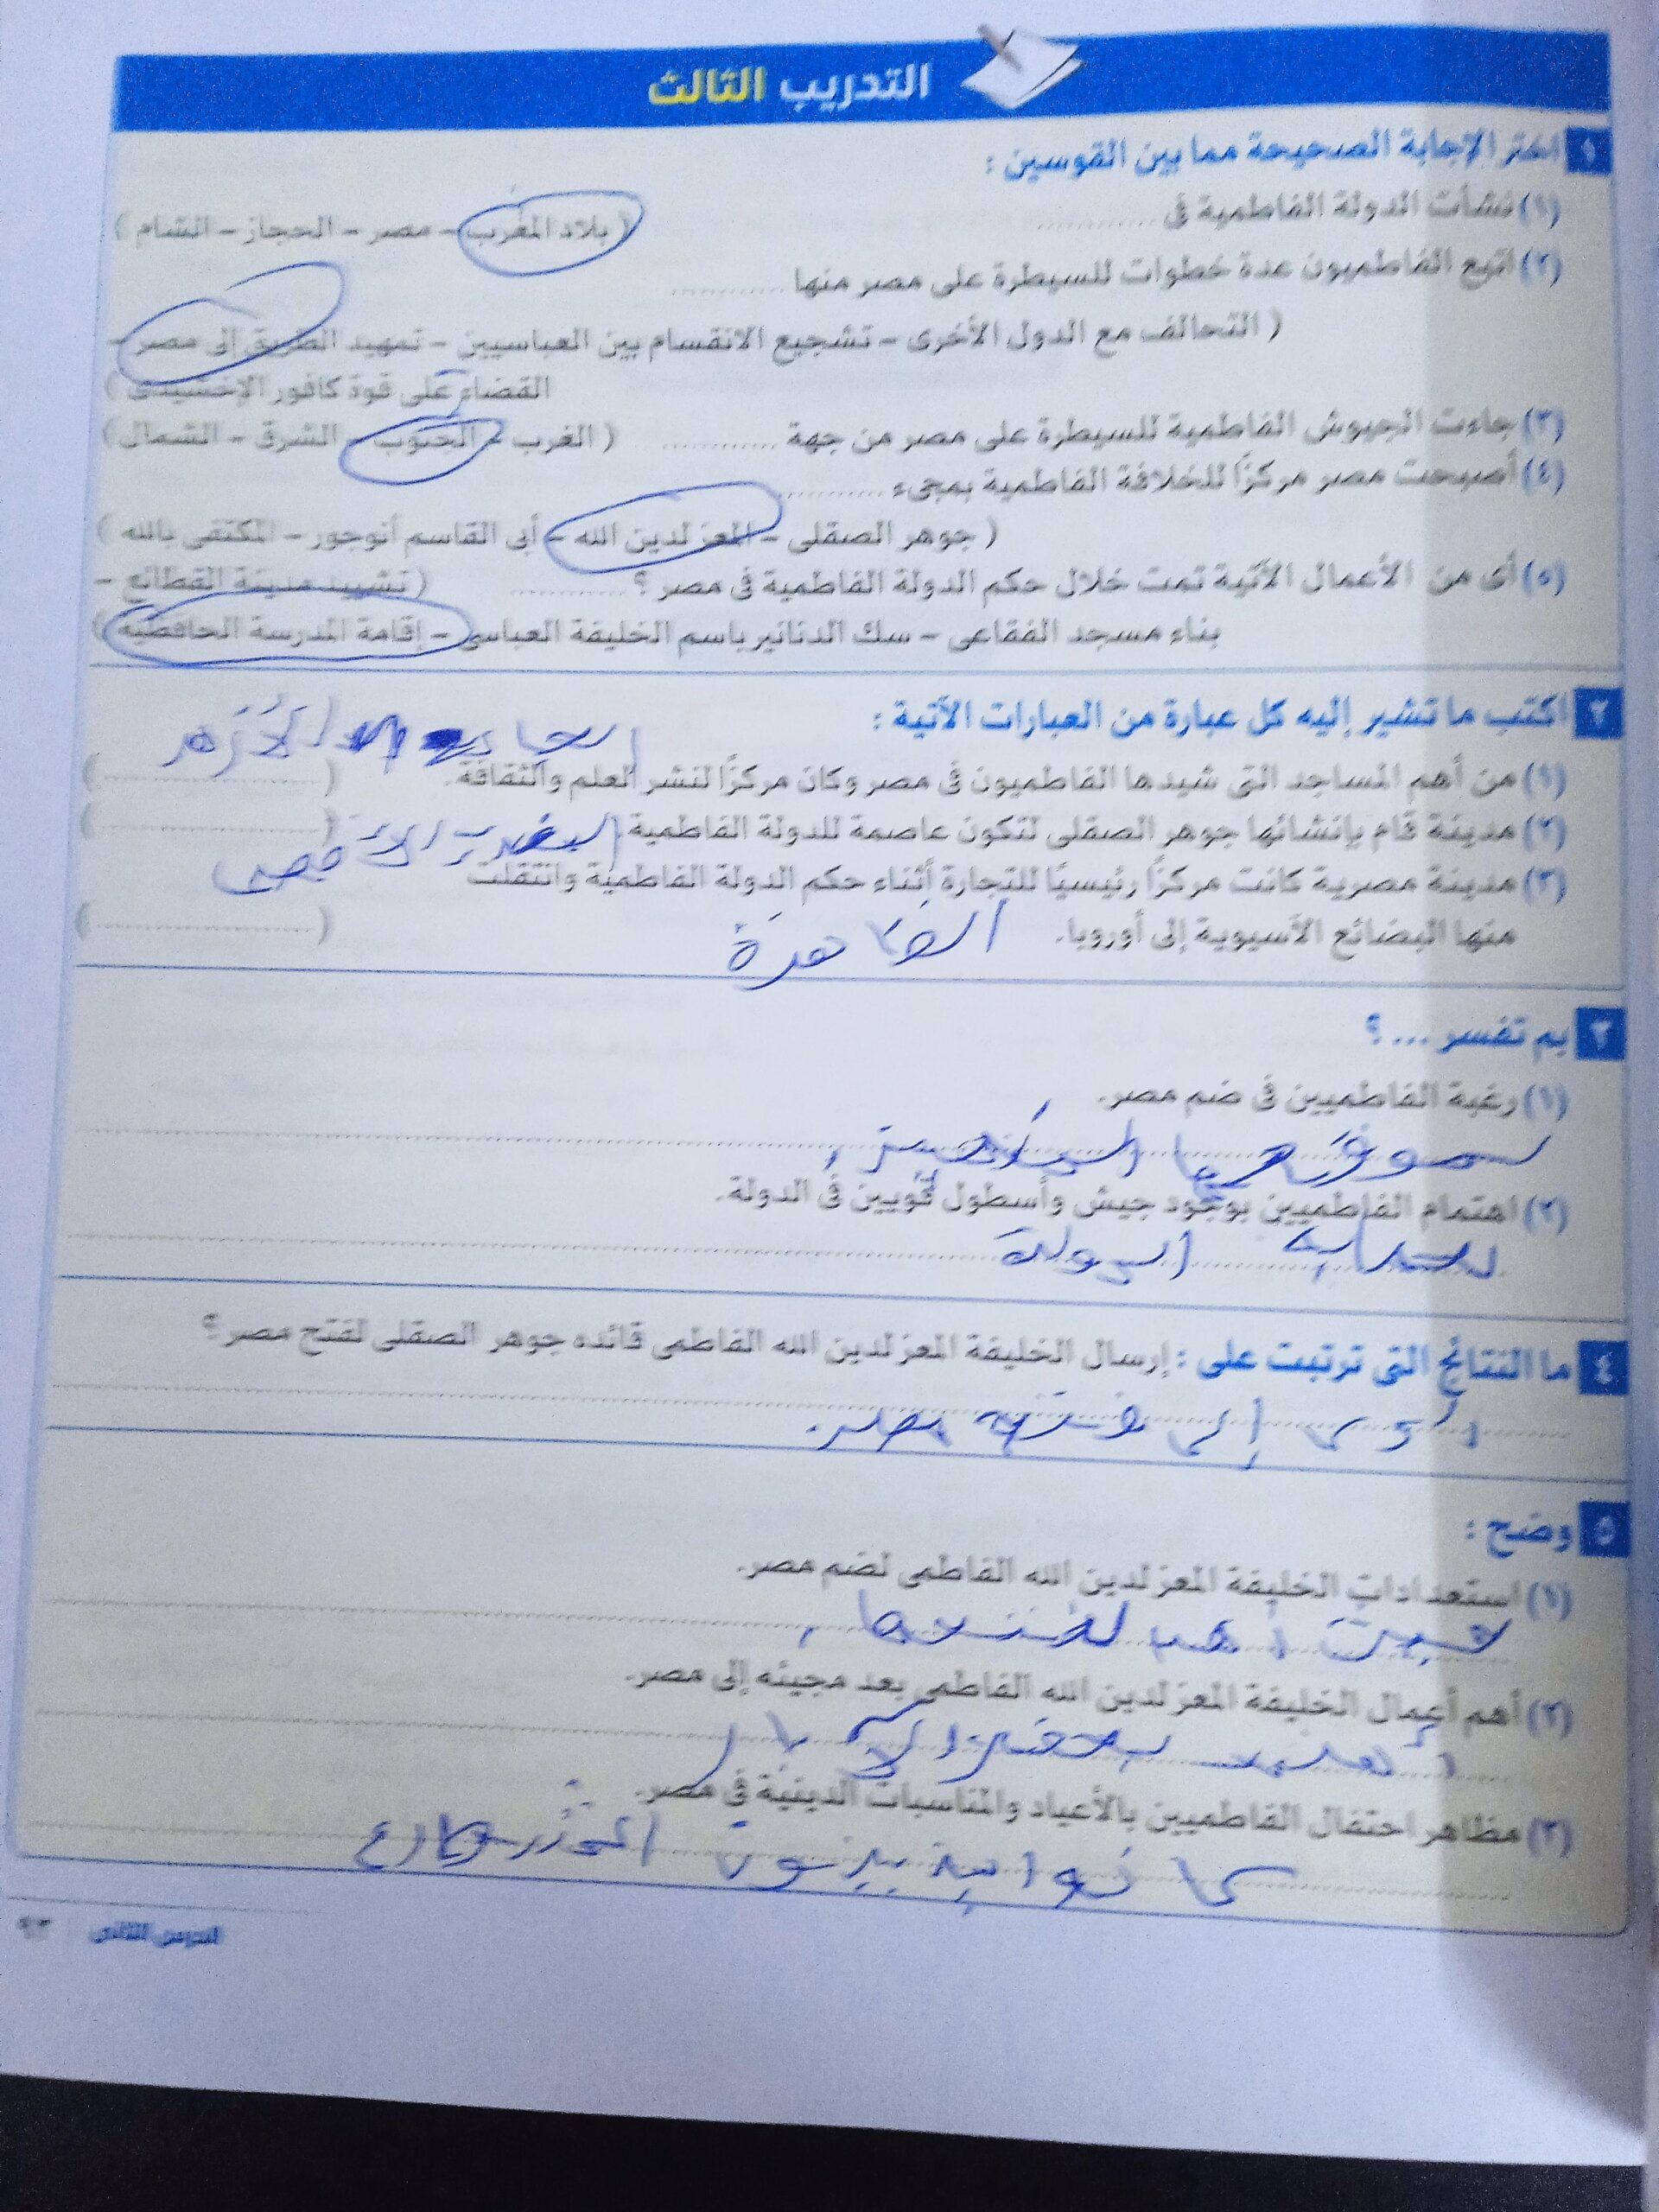 التدريب الثالث
١ اختر الإجابة الصحيحة مما بين القوسين :
(١) نشأت الدولة الفاطمية فى ............ ( بلاد المغرب – مصر – الحجاز – الشام )
(٢) اتبع الفاطميون عدة خطوات للسيطرة على مصر منها ............
( التحالف مع الدول الأخرى – تشجيع الانقسام بين العباسيين – تمهيد الطريق إلى مصر –
القضاء على قوة كافور الإخشيدى )
(٣) جاءت الجيوش الفاطمية للسيطرة على مصر من جهة ............ ( الغرب – الجنوب – الشرق – الشمال )
(٤) أصبحت مصر مركزًا للخلافة الفاطمية بمجىء ............
( جوهر الصقلى – المعز لدين الله – أبى القاسم أنوجور – المكتفى بالله )
(٥) أى من الأعمال الآتية تمت خلال حكم الدولة الفاطمية فى مصر ؟ ............ ( تشييد مدينة القطائع –
بناء مسجد الفقاعى – سك الدنانير باسم الخليفة العباسى – إقامة المدرسة الحافظية )
٢ اكتب ما تشير إليه كل عبارة من العبارات الآتية :
الجامع الأزهر
(١) من أهم المساجد التى شيدها الفاطميون فى مصر وكان مركزًا لنشر العلم والثقافة. ( ............ )
(٢) مدينة قام بإنشائها جوهر الصقلى لتكون عاصمة للدولة الفاطمية. ( ............ )
(٣) مدينة مصرية كانت مركزًا رئيسيًا للتجارة أثناء حكم الدولة الفاطمية وانتقلت
منها البضائع الآسيوية إلى أوروبا. ( ............ )
القاهرة
٣ بم تفسر ... ؟
(١) رغبة الفاطميين فى ضم مصر.
(٢) اهتمام الفاطميين بوجود جيش وأسطول قويين فى الدولة.
لحماية الدولة
٤ ما النتائج التى ترتبت على : إرسال الخليفة المعز لدين الله الفاطمى قائده جوهر الصقلى لفتح مصر ؟
إلى مصر.
٥ وضح :
(١) استعدادات الخليفة المعز لدين الله الفاطمى لضم مصر.
(٢) أهم أعمال الخليفة المعز لدين الله الفاطمى بعد مجيئه إلى مصر.
(٣) مظاهر احتفال الفاطميين بالأعياد والمناسبات الدينية فى مصر.
كانوا يزينون
الدرس الثانى ٩٣